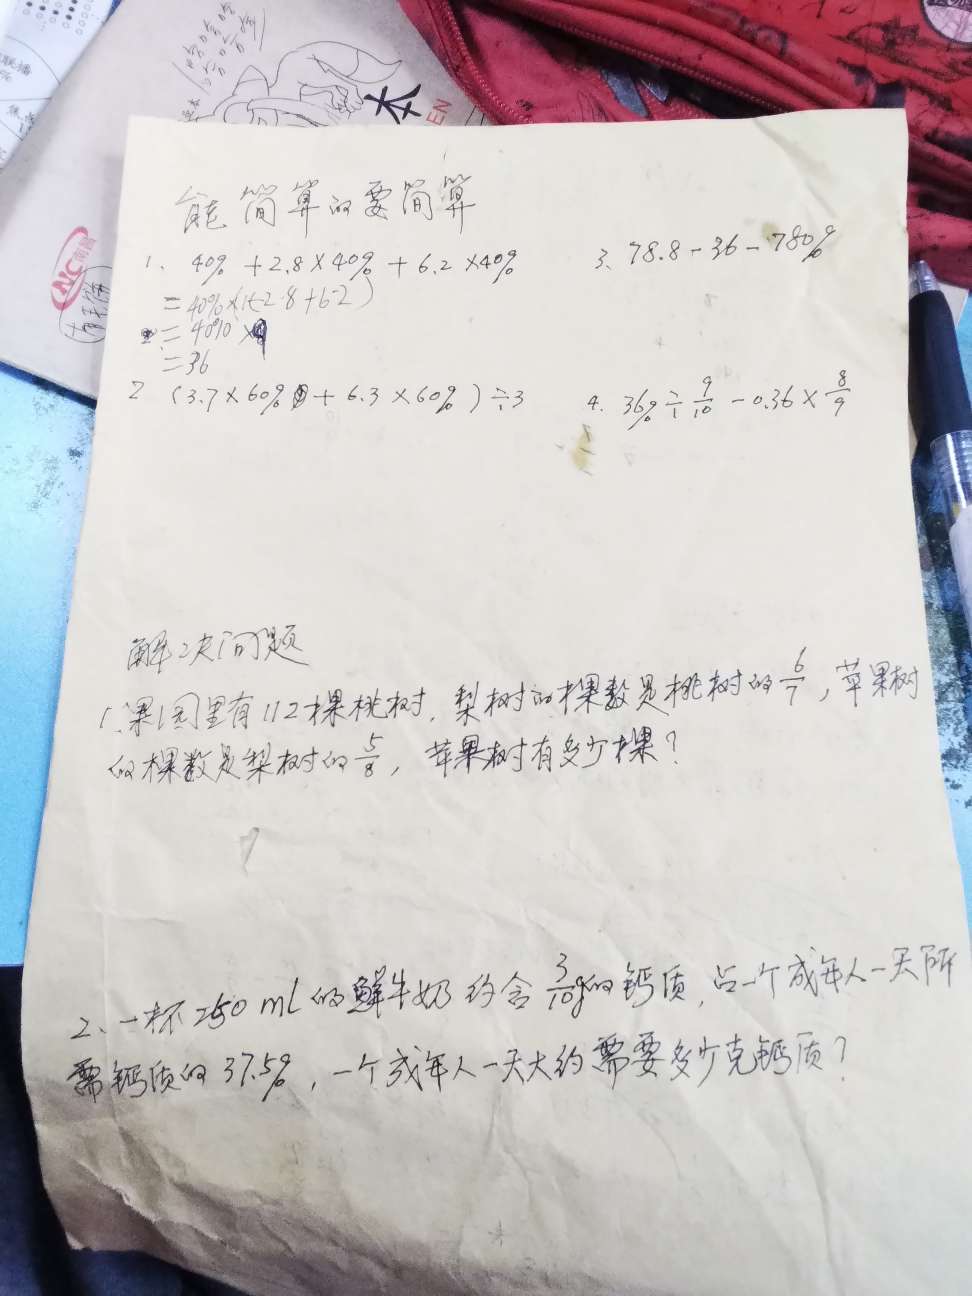 本
EN
NC
能简算的要简算
1. 40% + 2.8 × 40% + 6.2 × 40%
= 40% × (1 + 2.8 + 6.2)
= 40% ×
= 36
2 (3.7 × 60% + 6.3 × 60%) ÷ 3
3. 78.8 - 36 - 780%
4. 36% ÷ 9/10 - 0.36 × 8/9
解决问题
1. 果园里有112棵桃树,梨树的棵数是桃树的6/7,苹果树
的棵数是梨树的5/8,苹果树有多少棵?
2、一杯250ml的鲜牛奶约含3/10g的钙质,占一个成年人一天所
需钙质的37.5%,一个成年人一天大约需要多少克钙质?